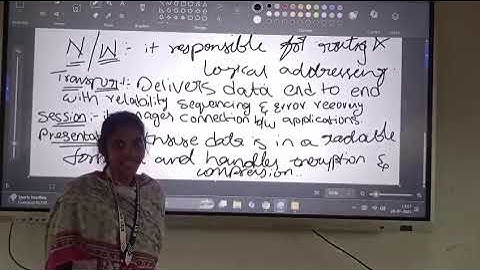 N/W :- it responsible for routing &
logical addressing
Transport :- Delivers data end to end
with reliability sequencing & error recovery
Session :- it manages connection b/w applications.
ensure data is in a readable
and handles encryption &
compression..